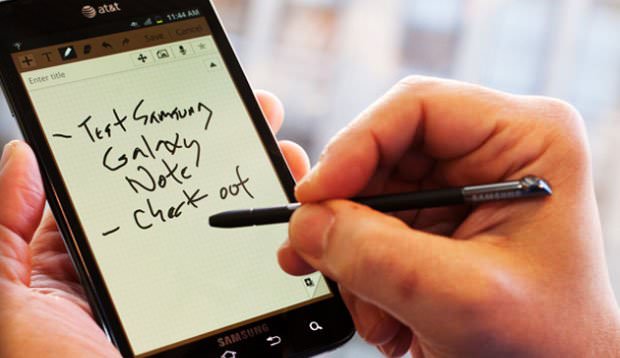 at&t
11:44 AM
T Save Cancel
Enter title
- Test Samsung
Galaxy
Note
- Check out
SAMSUNG
SAMSUNG